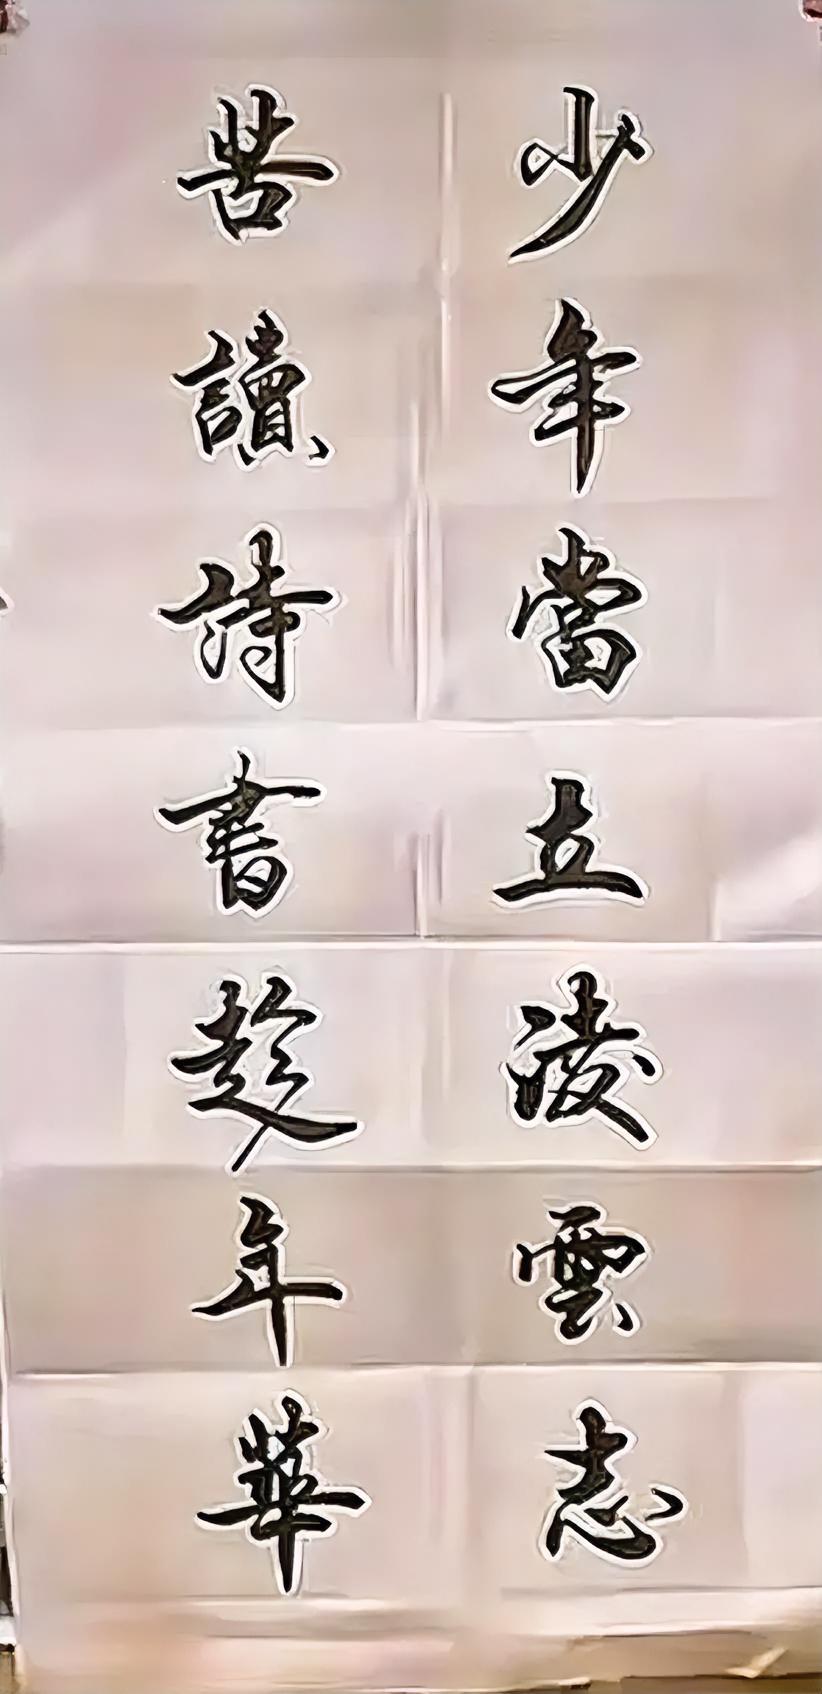 少年當立凌雲志
苦讀詩書趁年華